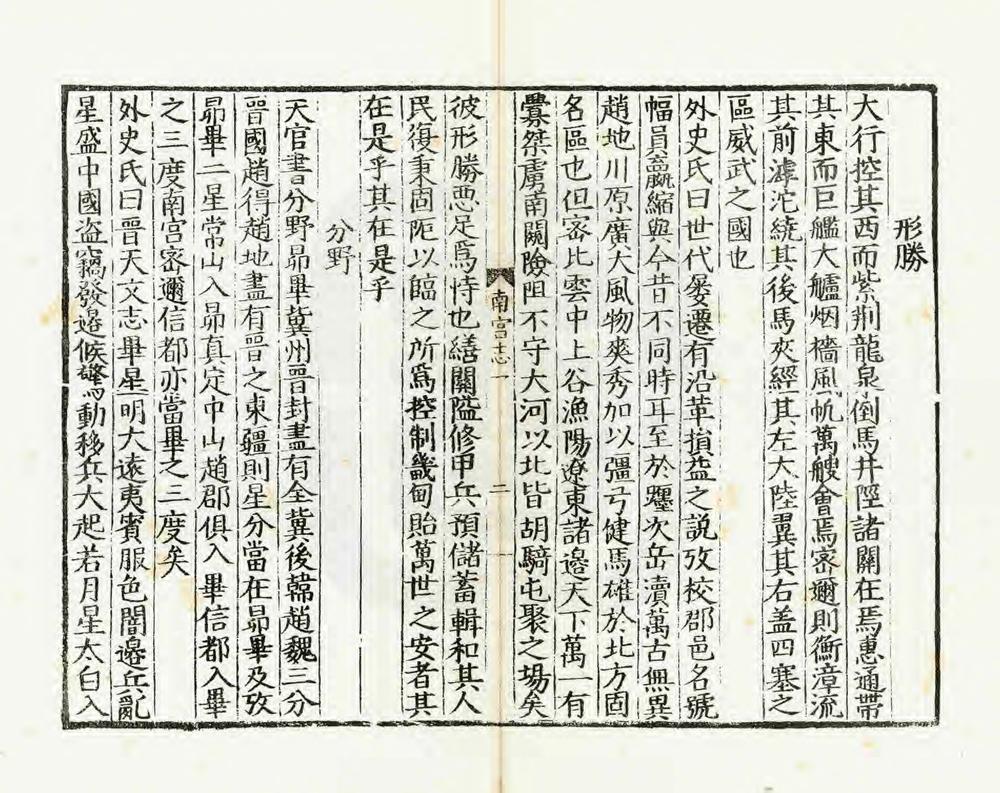 形勝
大行控其西而紫荆龍泉倒馬井陘諸關在焉惠通帶
其東而巨艦大艫烟檣風帆萬艘會焉密邇則衡漳流
其前滹沱繞其後馬夾經其左大陸翼其右盖四塞之
區威武之國也
外史氏曰世代屡遷有沿革損益之説攷校郡邑名號
幅員嬴縮與今昔不同時耳至於躔次岳瀆萬古無異
趙地川原廣大風物爽秀加以彊弓健馬雄於北方固
名區也但密比雲中上谷漁陽遼東諸邉天下萬一有
釁桀虜南闞險阻不守大河以北皆胡騎屯聚之場矣
南宫志一
二
彼形勝悪足爲恃也繕關隘修甲兵預儲蓄輯和其人
民復秉固阨以臨之所爲控制畿甸貽萬世之安者其
在是乎其在是乎
分野
天官書分野昴畢冀州晋封盡有全冀後韓趙魏三分
晋國趙得趙地盡有晋之東疆則星分當在昴畢及攷
昴畢二星常山入昴真定中山趙郡俱入畢信都入畢
之三度南宫密邇信都亦當畢之三度矣
外史氏曰晋天文志畢星明大遠夷賓服色闇邉兵亂
星盛中國盗竊發邉候驚動移兵大起若月星太白入